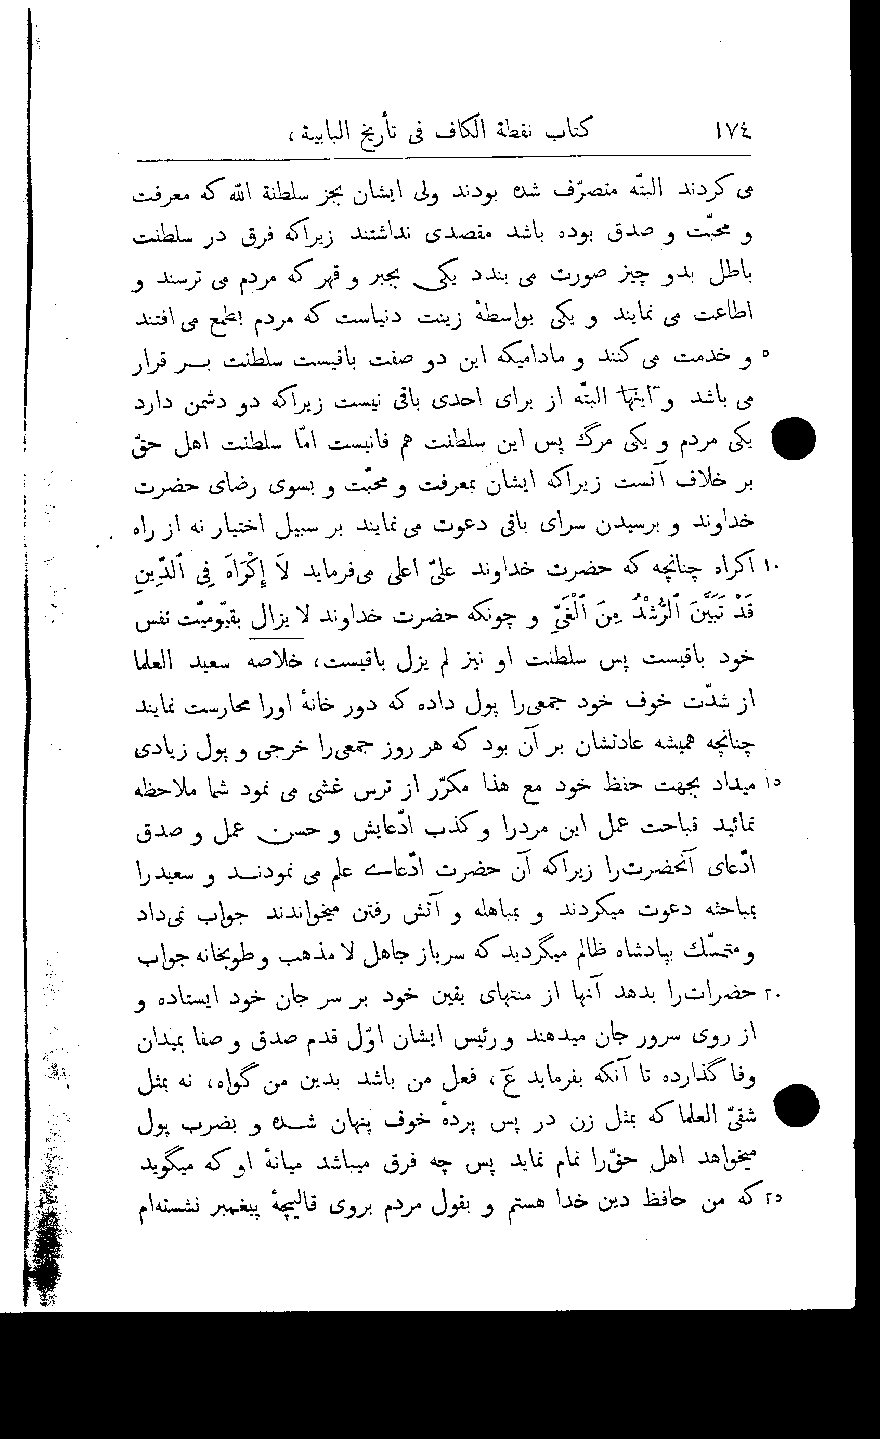 ١٧٤ كتاب نقطة الكاف فى تأريخ البابية ،
می كردند البتّه متصرّف شده بودند ولی ايشان بجز سلطنة الله كه معرفت
و محبّت و صدق بوده باشد مقصدی نداشتند زيراكه فرق در سلطنت
باطل بدو چيز صورت می بندد يكی بجبر و قهر كه مردم می ترسند و
اطاعت می نمايند و يكی بواسطهٔ زينت دنياست كه مردم بطمع می افتند
٥ و خدمت می كنند و ماداميكه اين دو صفت باقيست سلطنت بر قرار
می باشد و اينها البتّه از برای احدی باقی نيست زيراكه دو دشمن دارد
يكی مردم و يكی مرگ پس اين سلطنت هم فانيست امّا سلطنت اهل حقّ
بر خلاف آنست زيراكه ايشان بمعرفت و محبّت و بسوی رضای حضرت
خداوند و برسيدن سرای باقی دعوت می نمايند بر سبيل اختيار نه از راه
١٠ اكراه چنانچه كه حضرت خداوند علیّ اعلی می‌فرمايد لَا إِكْرَاهَ فِی ٱلدِّينِ
قَدْ تَبَيَّنَ ٱلرُّشْدُ مِنَ ٱلْغَیِّ و چونكه حضرت خداوند لا يزال بقيّوميّت نفس
خود باقيست پس سلطنت او نيز لم يزل باقيست، خلاصه سعيد العلما
از شدّت خوف خود جمعی‌را پول داده كه دور خانهٔ اورا محارست نمايند
چنانچه هميشه عادتشان بر آن بود كه هر روز جمعی‌را خرجی و پول زيادی
١٥ ميداد بجهت حفظ خود مع هذا مكرّر از ترس غشی می نمود شما ملاحظه
نمائيد قباحت عمل اين مردرا و كذب ادّعايش و حسن عمل و صدق
ادّعای آنحضرت‌را زيراكه آن حضرت ادّعای علم می نمودند و سعيدرا
بمباحثه دعوت ميكردند و بمباهله و آتش رفتن ميخواندند جواب نمی‌داد
و متمسّك بپادشاه ظالم ميگرديد كه سرباز جاهل لا مذهب و طوپخانه جواب
٢٠ حضرات‌را بدهد آنها از منتهای يقين خود بر سر جان خود ايستاده و
از روی سرور جان ميدهند و رئيس ايشان اوّل قدم صدق و صفا بميدان
وفا گذارده تا آنكه بفرمايد ع، فعل من باشد بدين من گواه، نه بمثل
شقیّ العلما كه بمثل زن در پس پردهٔ خوف پنهان شده و بضرب پول
ميخواهد اهل حقّ‌را تمام نمايد پس چه فرق ميباشد ميانهٔ او كه ميگويد
٢٥ كه من حافظ دين خدا هستم و بقول مردم بروی قاليچهٔ پيغمبر نشسته‌ام